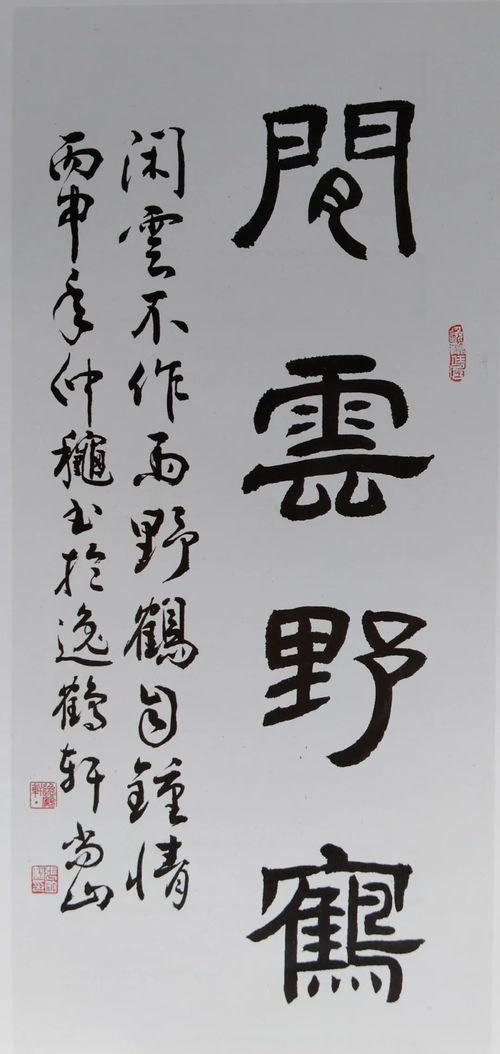 閒雲野鶴
閑雲不作雨野鶴自鍾情
丙申年仲龝书於逸鶴軒尚山